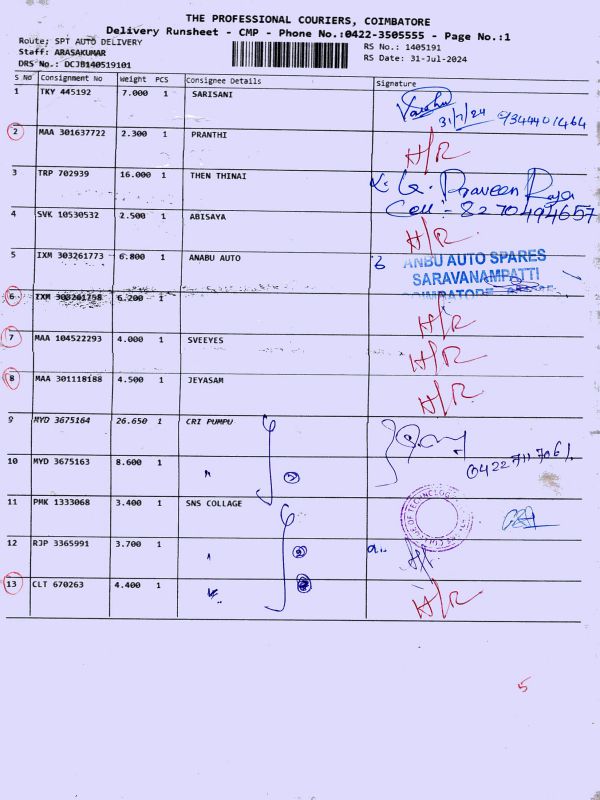 THE PROFESSIONAL COURIERS, COIMBATORE
Delivery Runsheet - CMP - Phone No.:0422-3505555 - Page No.:1
Route; SPT AUTO DELIVERY
RS No.: 1405191
Staff: ARASAKUMAR
RS Date: 31-Jul-2024
DRS No.: DCJB140519101
S No Consignment No Weight PCS Consignee Details Signature
1 TKY 445192 7.000 1 SARISANI
31/7/24 9344401464
2 MAA 301637722 2.300 1 PRANTHI H/R
3 TRP 702939 16.000 1 THEN THINAI Praveen Raja
Cell:- 8270494657
4 SVK 10530532 2.500 1 ABISAYA H/R
5 IXM 303261773 6.800 1 ANABU AUTO ANBU AUTO SPARES
SARAVANAMPATTI
COIMBATORE
6 IXM 303261758 6.200 1 H/R
7 MAA 104522293 4.000 1 SVEEYES H/R
8 MAA 301118188 4.500 1 JEYASAM H/R
9 MYD 3675164 26.650 1 CRI PUMPU
04227117061
10 MYD 3675163 8.600 1
11 PMK 1333068 3.400 1 SNS COLLAGE OF TECHNOLOG
12 RJP 3365991 3.700 1 H/R
13 CLT 670263 4.400 1 H/R
5